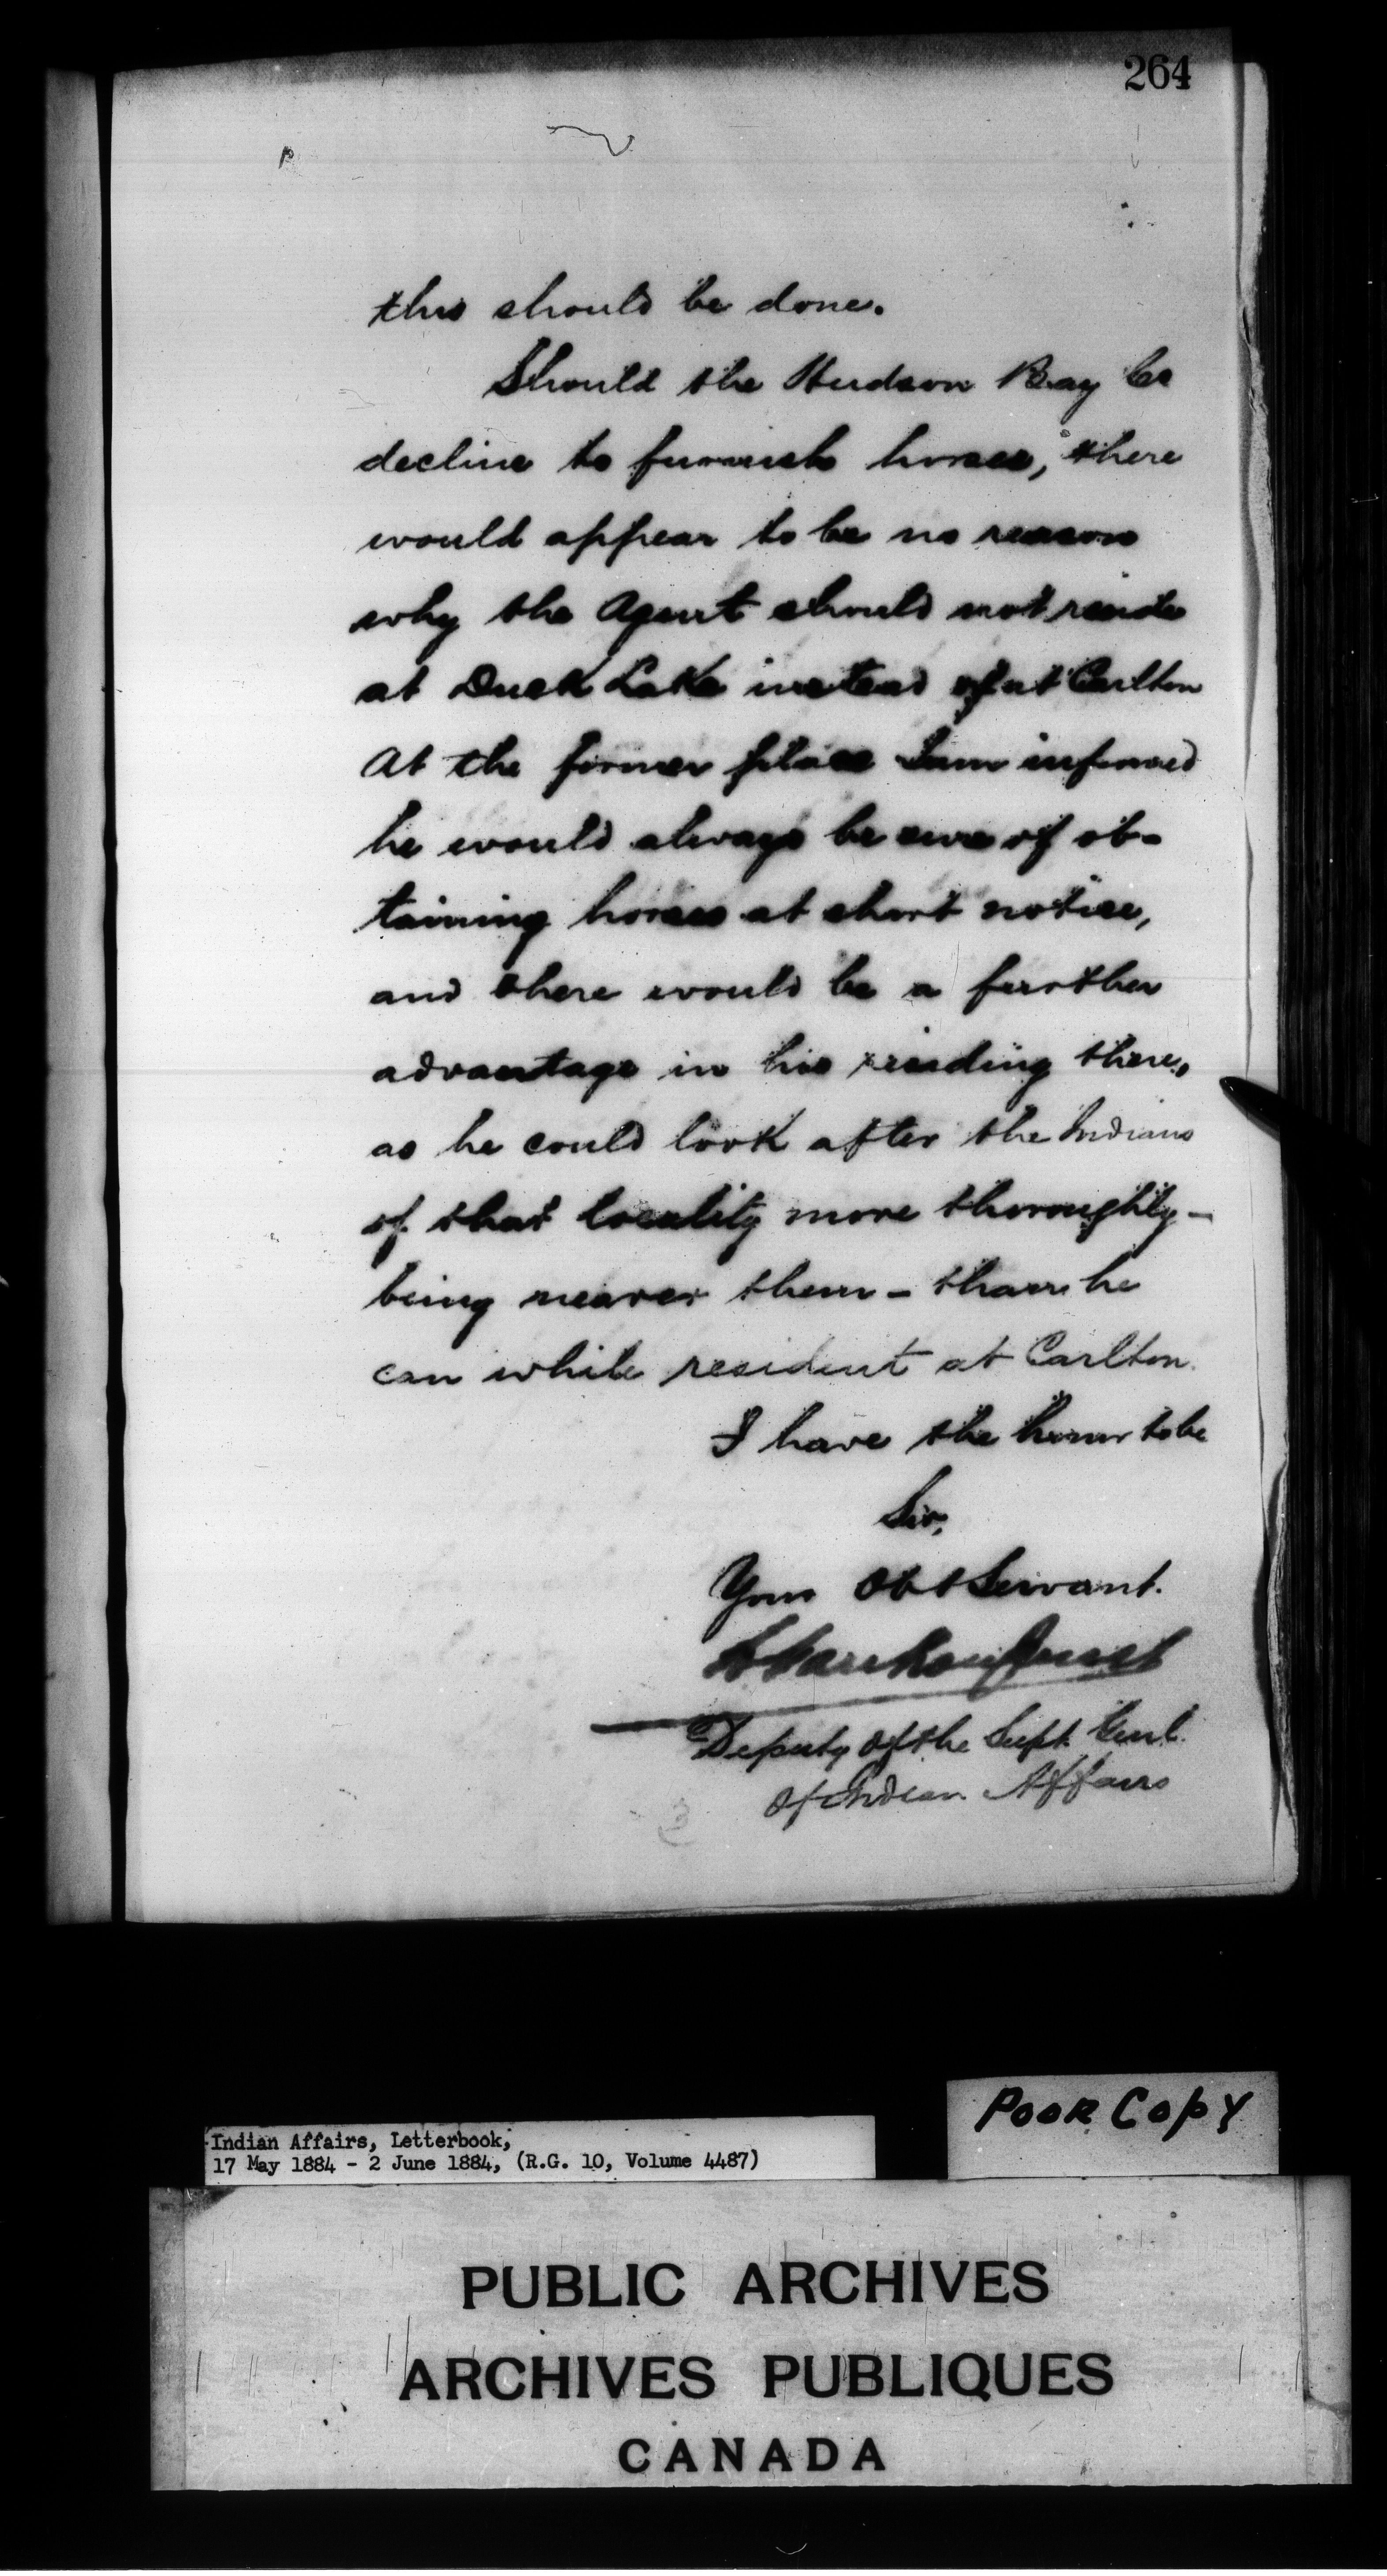 264
this should be done.
Should the Hudson Bay Co
decline to furnish horses, there
would appear to be no reason
why the Agent should not reside
at Duck Lake instead of at Carlton
At the former place I am informed
he would always be sure of ob-
taining horses at short notice,
and there would be a further
advantage in his residing there,
as he could look after the Indians
of that locality more thoroughly -
being nearer them - than he
can while resident at Carlton.
I have the honor to be
Sir,
Your Obt Servant.
L Vankoughnet
Deputy of the Supt. Genl.
Of Indian Affairs
Poor Copy
Indian Affairs, Letterbook,
17 May 1884 - 2 June 1884, (R.G. 10, Volume 4487)
PUBLIC ARCHIVES
ARCHIVES PUBLIQUES
CANADA